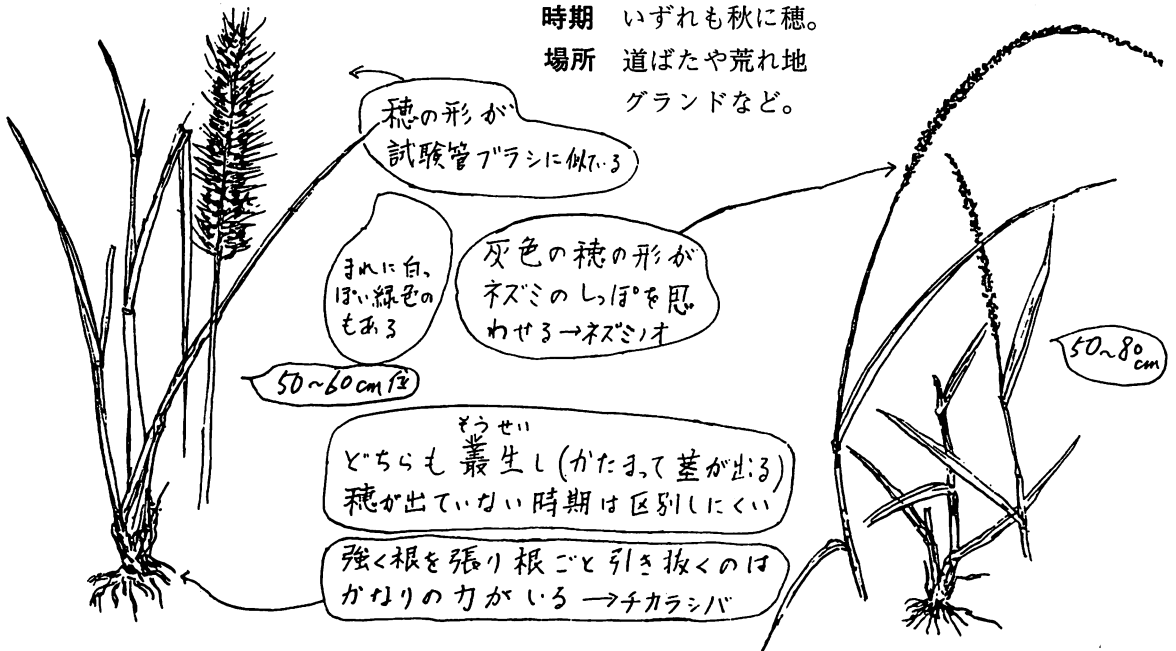 時期 いずれも秋に穂。
場所 道ばたや荒れ地
グランドなど。
穂の形が
試験管ブラシに似ている
まれに白っ
ぽい緑色の
もある
灰色の穂の形が
ネズミのしっぽを思
わせる→ネズミノオ
50~60cm位
50~80cm
そうせい
どちらも叢生し(かたまって茎が出る)
穂が出ていない時期は区別しにくい
強く根を張り根ごと引き抜くのは
かなりの力がいる→チカラシバ